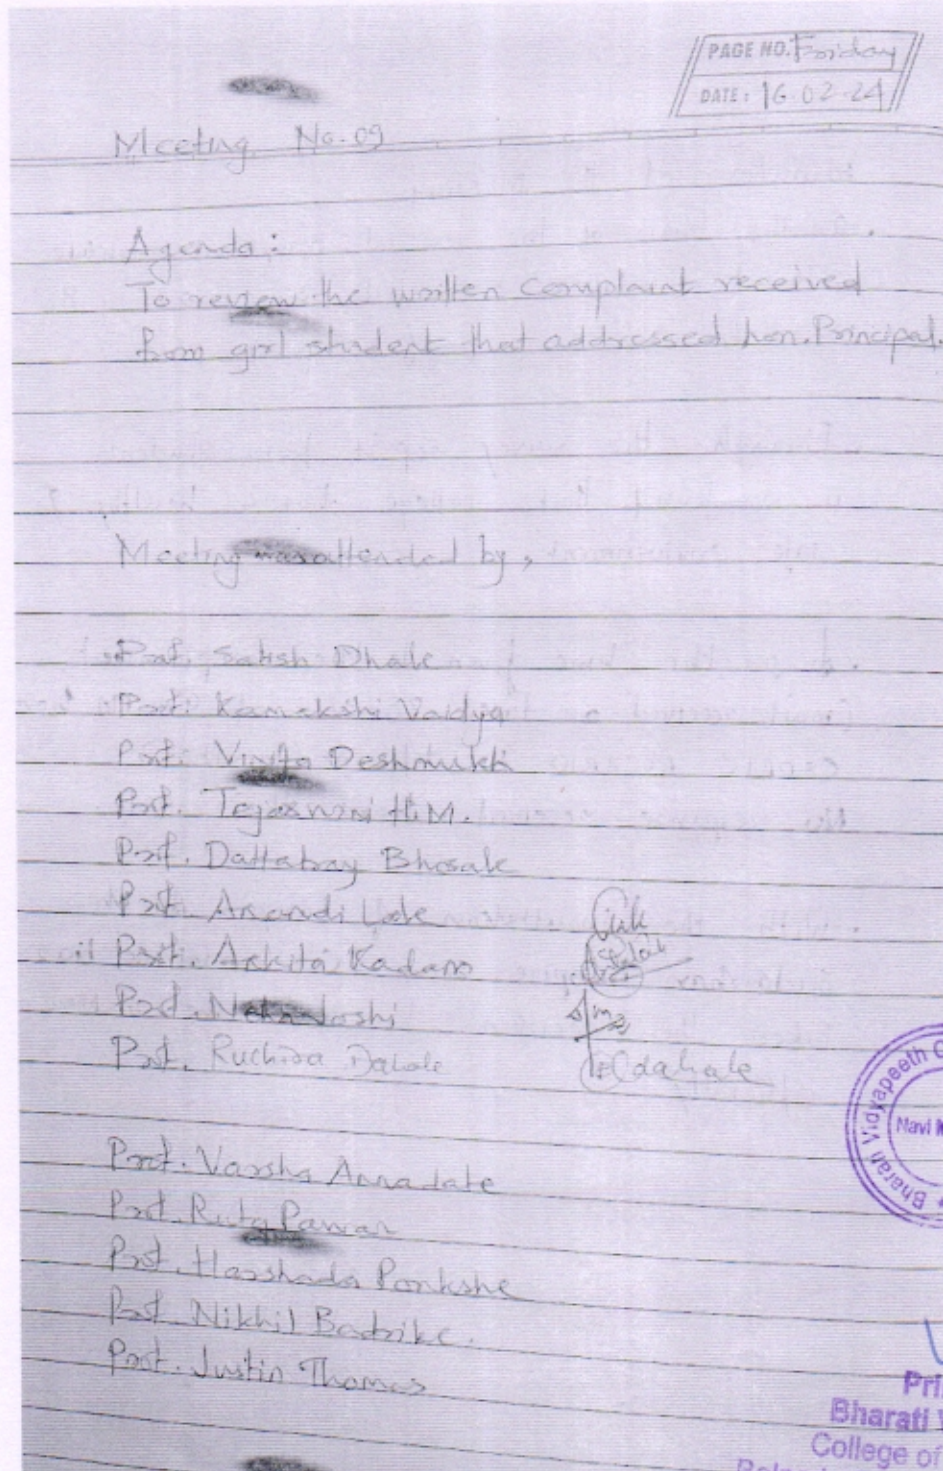 PAGE NO. Friday
DATE: 16.02.24
Meeting No.09
Agenda:
To review the written complaint received
from girl student that addressed hon. Principal.
Meeting was attended by,
Prof. Satish Dhale
Prof. Kamakshi Vaidya
Prof. Vinita Deshmukh
Prof. Tejaswini H.M.
Prof. Dattatray Bhosale
Prof. Anandi
Prof. Ankita Kadam
Prof. Neha Joshi
Prof. Ruchira Dahale dahale
Prof. Varsha Annadate
Prof. Ruta Pawar
Prof. Harshada Ponkshe
Prof. Nikhil Badrike.
Prof. Justin Thomas
Bharati Vidyapeeth
Navi
Bharati
College of